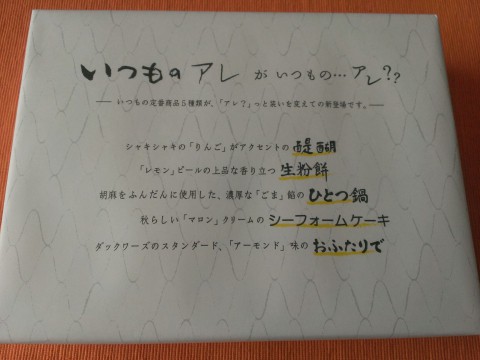 いつものアレがいつもの…アレ??
― いつもの定番商品5種類が、「アレ？」っと装いを変えての新登場です。―
シャキシャキの「りんご」がアクセントの醍醐
「レモン」ピールの上品な香り立つ生粉餅
胡麻をふんだんに使用した、濃厚な「ごま」餡のひとつ鍋
秋らしい「マロン」クリームのシーフォームケーキ
ダックワーズのスタンダード、「アーモンド」味のおふたりで